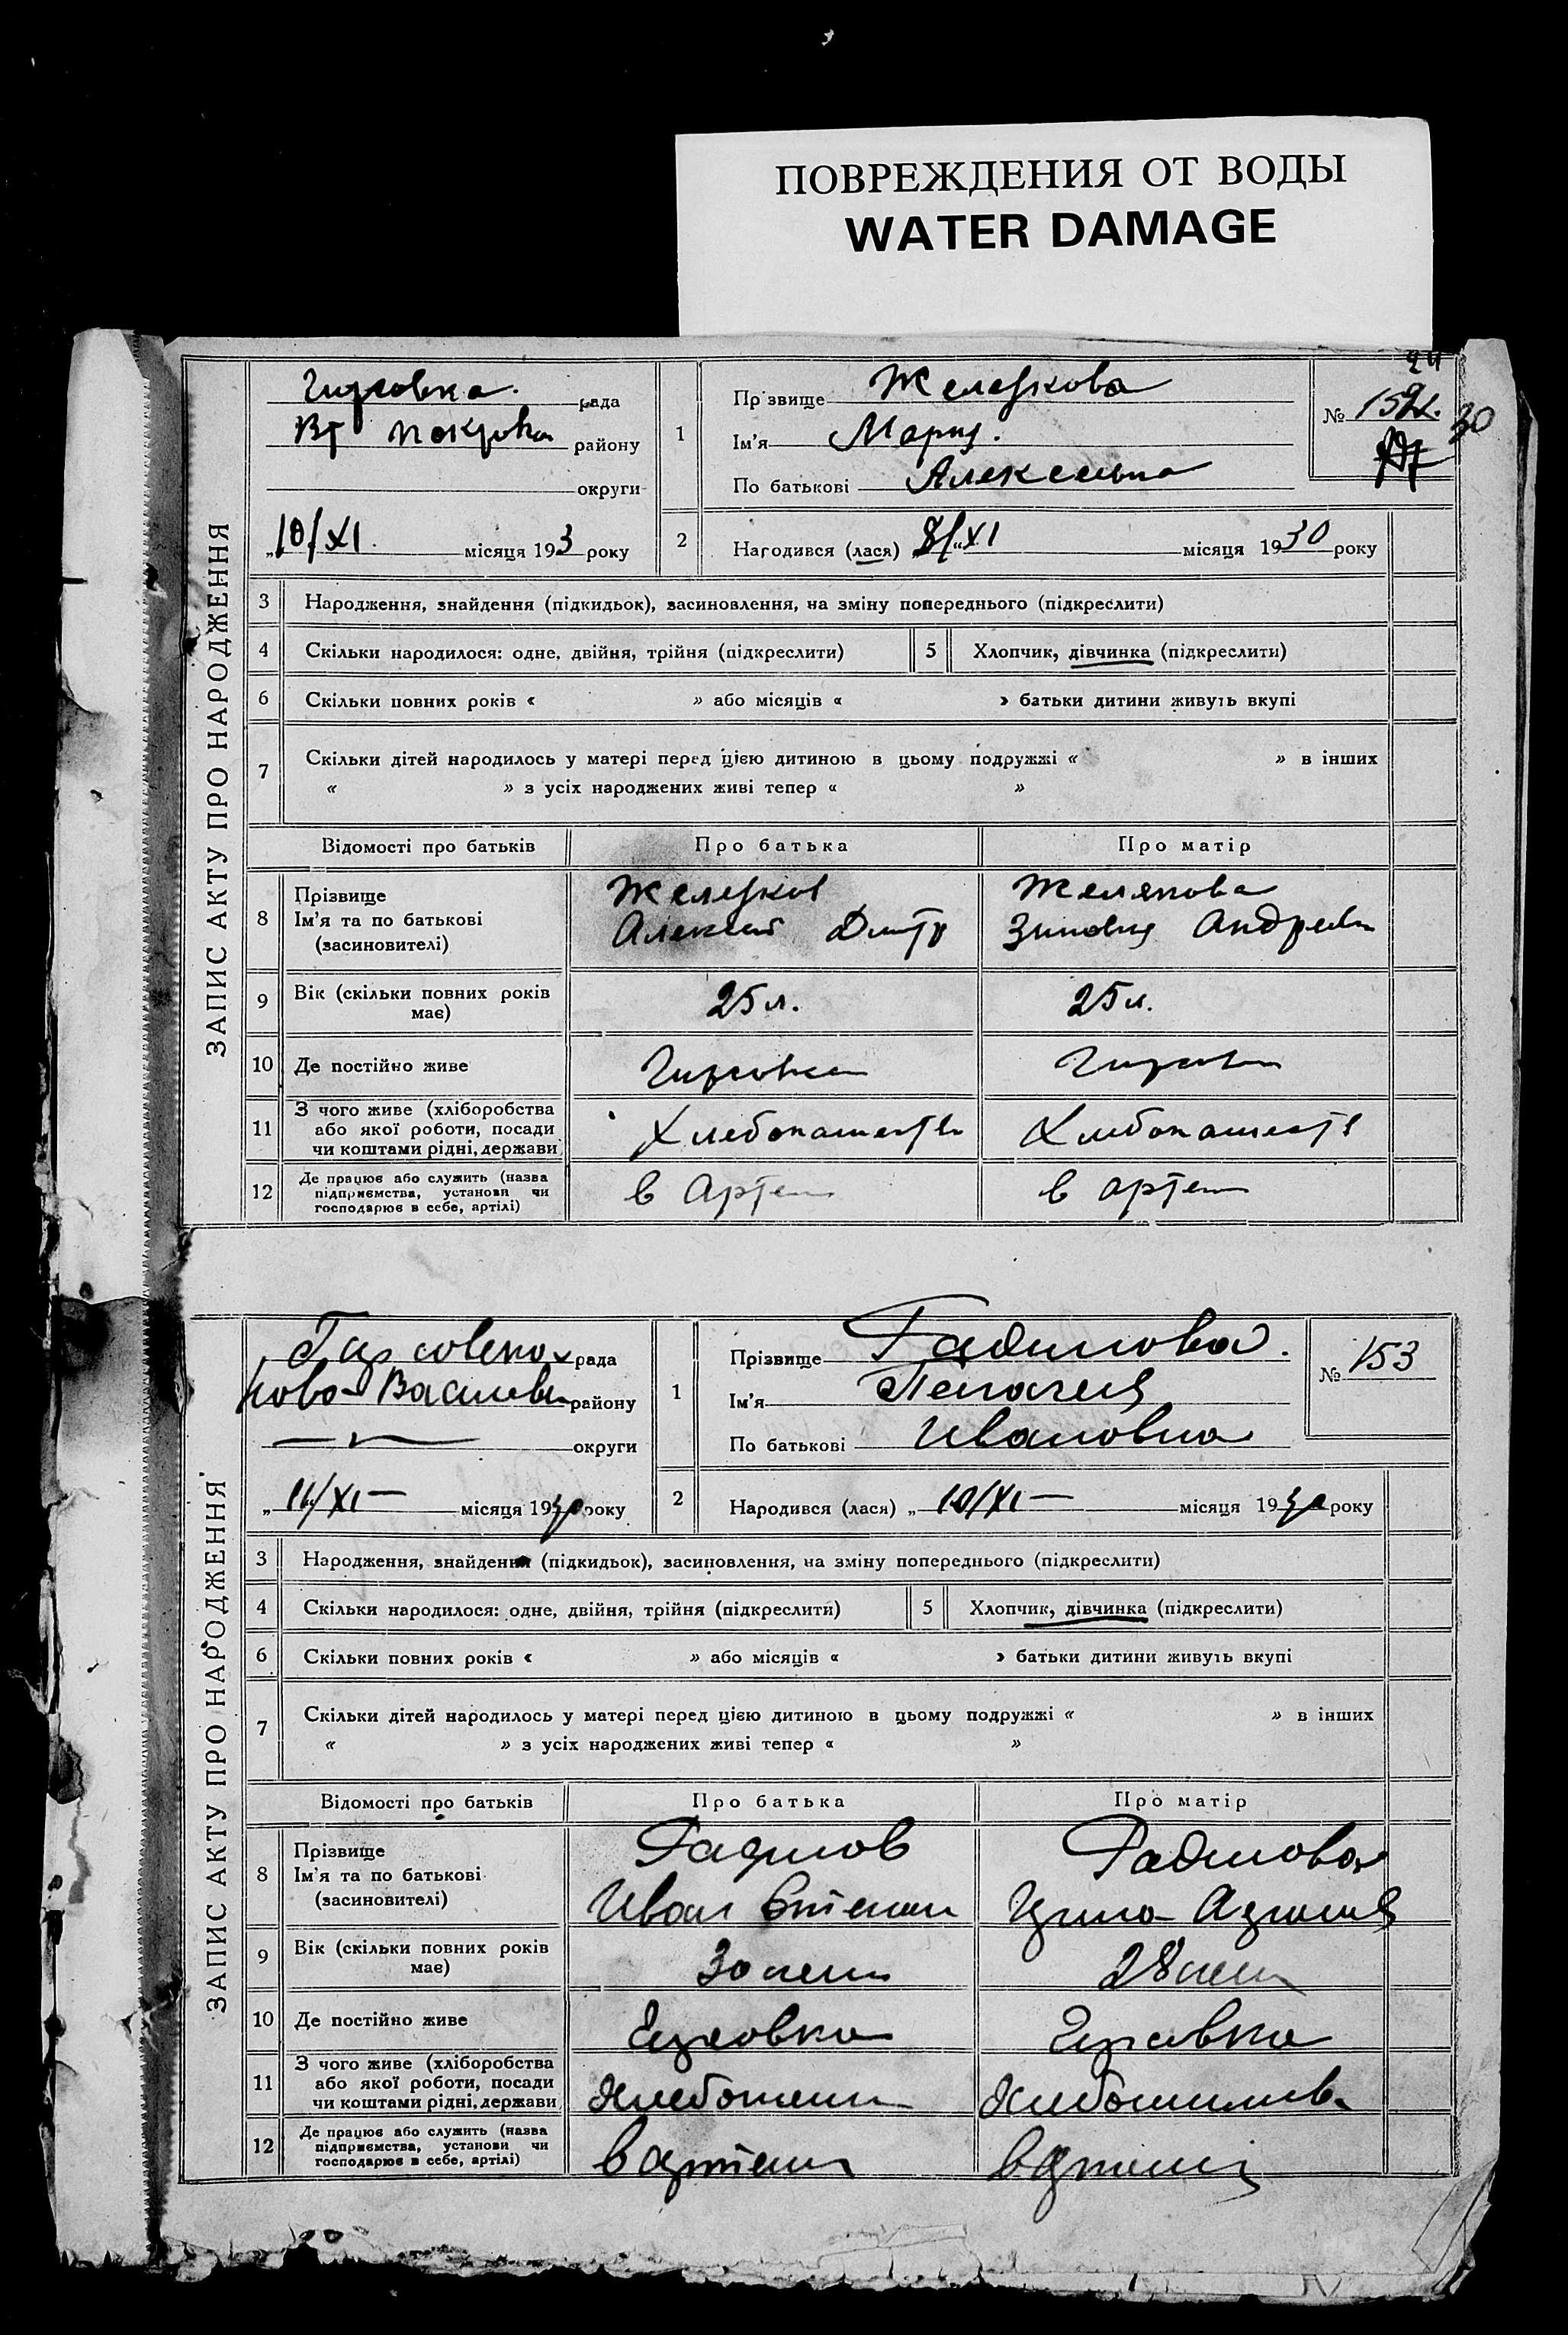 ПОВРЕЖДЕНИЯ ОТ ВОДЫ
WATER DAMAGE
24
30
ЗАПИС АКТУ ПРО НАРОДЖЕННЯ
Гирсовка. рада
району
округи
„10/XI. місяця 193 року
1
Прізвище Железкова
Ім'я Мария.
По батькові Алексеевна
№ 152.
2 Народився (лася) 8/XI місяця 1930 року
3 Народження, знайдення (підкидьок), засиновлення, на зміну попереднього (підкреслити)
4 Скільки народилося: одне, двійня, трійня (підкреслити) 5 Хлопчик, дівчинка (підкреслити)
6 Скільки повних років « » або місяців « » батьки дитини живуть вкупі
7 Скільки дітей народилось у матері перед цією дитиною в цьому подружжі « » в інших
« » з усіх народжених живі тепер « »
Відомості про батьків Про батька Про матір
8 Прізвище
Ім'я та по батькові
(засиновителі)
Железков
Алексей Дмитр
Зиновия Андреевн
9 Вік (скільки повних років
має)
25 л. 25 л.
10 Де постійно живе Гирсовка
11 З чого живе (хліборобства
або якої роботи, посади
чи коштами рідні, держави
Хлебопашеств Хлебопашеств
12 Де працює або служить (назва
підприємства, установи чи
господарює в себе, артілі)
в Артели в артели
ЗАПИС АКТУ ПРО НАРОДЖЕННЯ
рада
Ново-Васильев району
округи
„11/XI— місяця 1930 року
1
Прізвище Радилова.
Ім'я Пелагея
По батькові Ивановна
№ 153
2 Народився (лася) „ 10/XI— місяця 1930 року
3 Народження, знайдення (підкидьок), засиновлення, на зміну попереднього (підкреслити)
4 Скільки народилося: одне, двійня, трійня (підкреслити) 5 Хлопчик, дівчинка (підкреслити)
6 Скільки повних років « » або місяців « » батьки дитини живуть вкупі
7 Скільки дітей народилось у матері перед цією дитиною в цьому подружжі « » в інших
« » з усіх народжених живі тепер « »
Відомості про батьків Про батька Про матір
8 Прізвище
Ім'я та по батькові
(засиновителі)
Радилов Радилова
Иван Степан
9 Вік (скільки повних років
має)
30 лет 28 лет
10 Де постійно живе Гирсовка Гирсовка
11 З чого живе (хліборобства
або якої роботи, посади
чи коштами рідні, держави
12 Де працює або служить (назва
підприємства, установи чи
господарює в себе, артілі)
в артели в артели